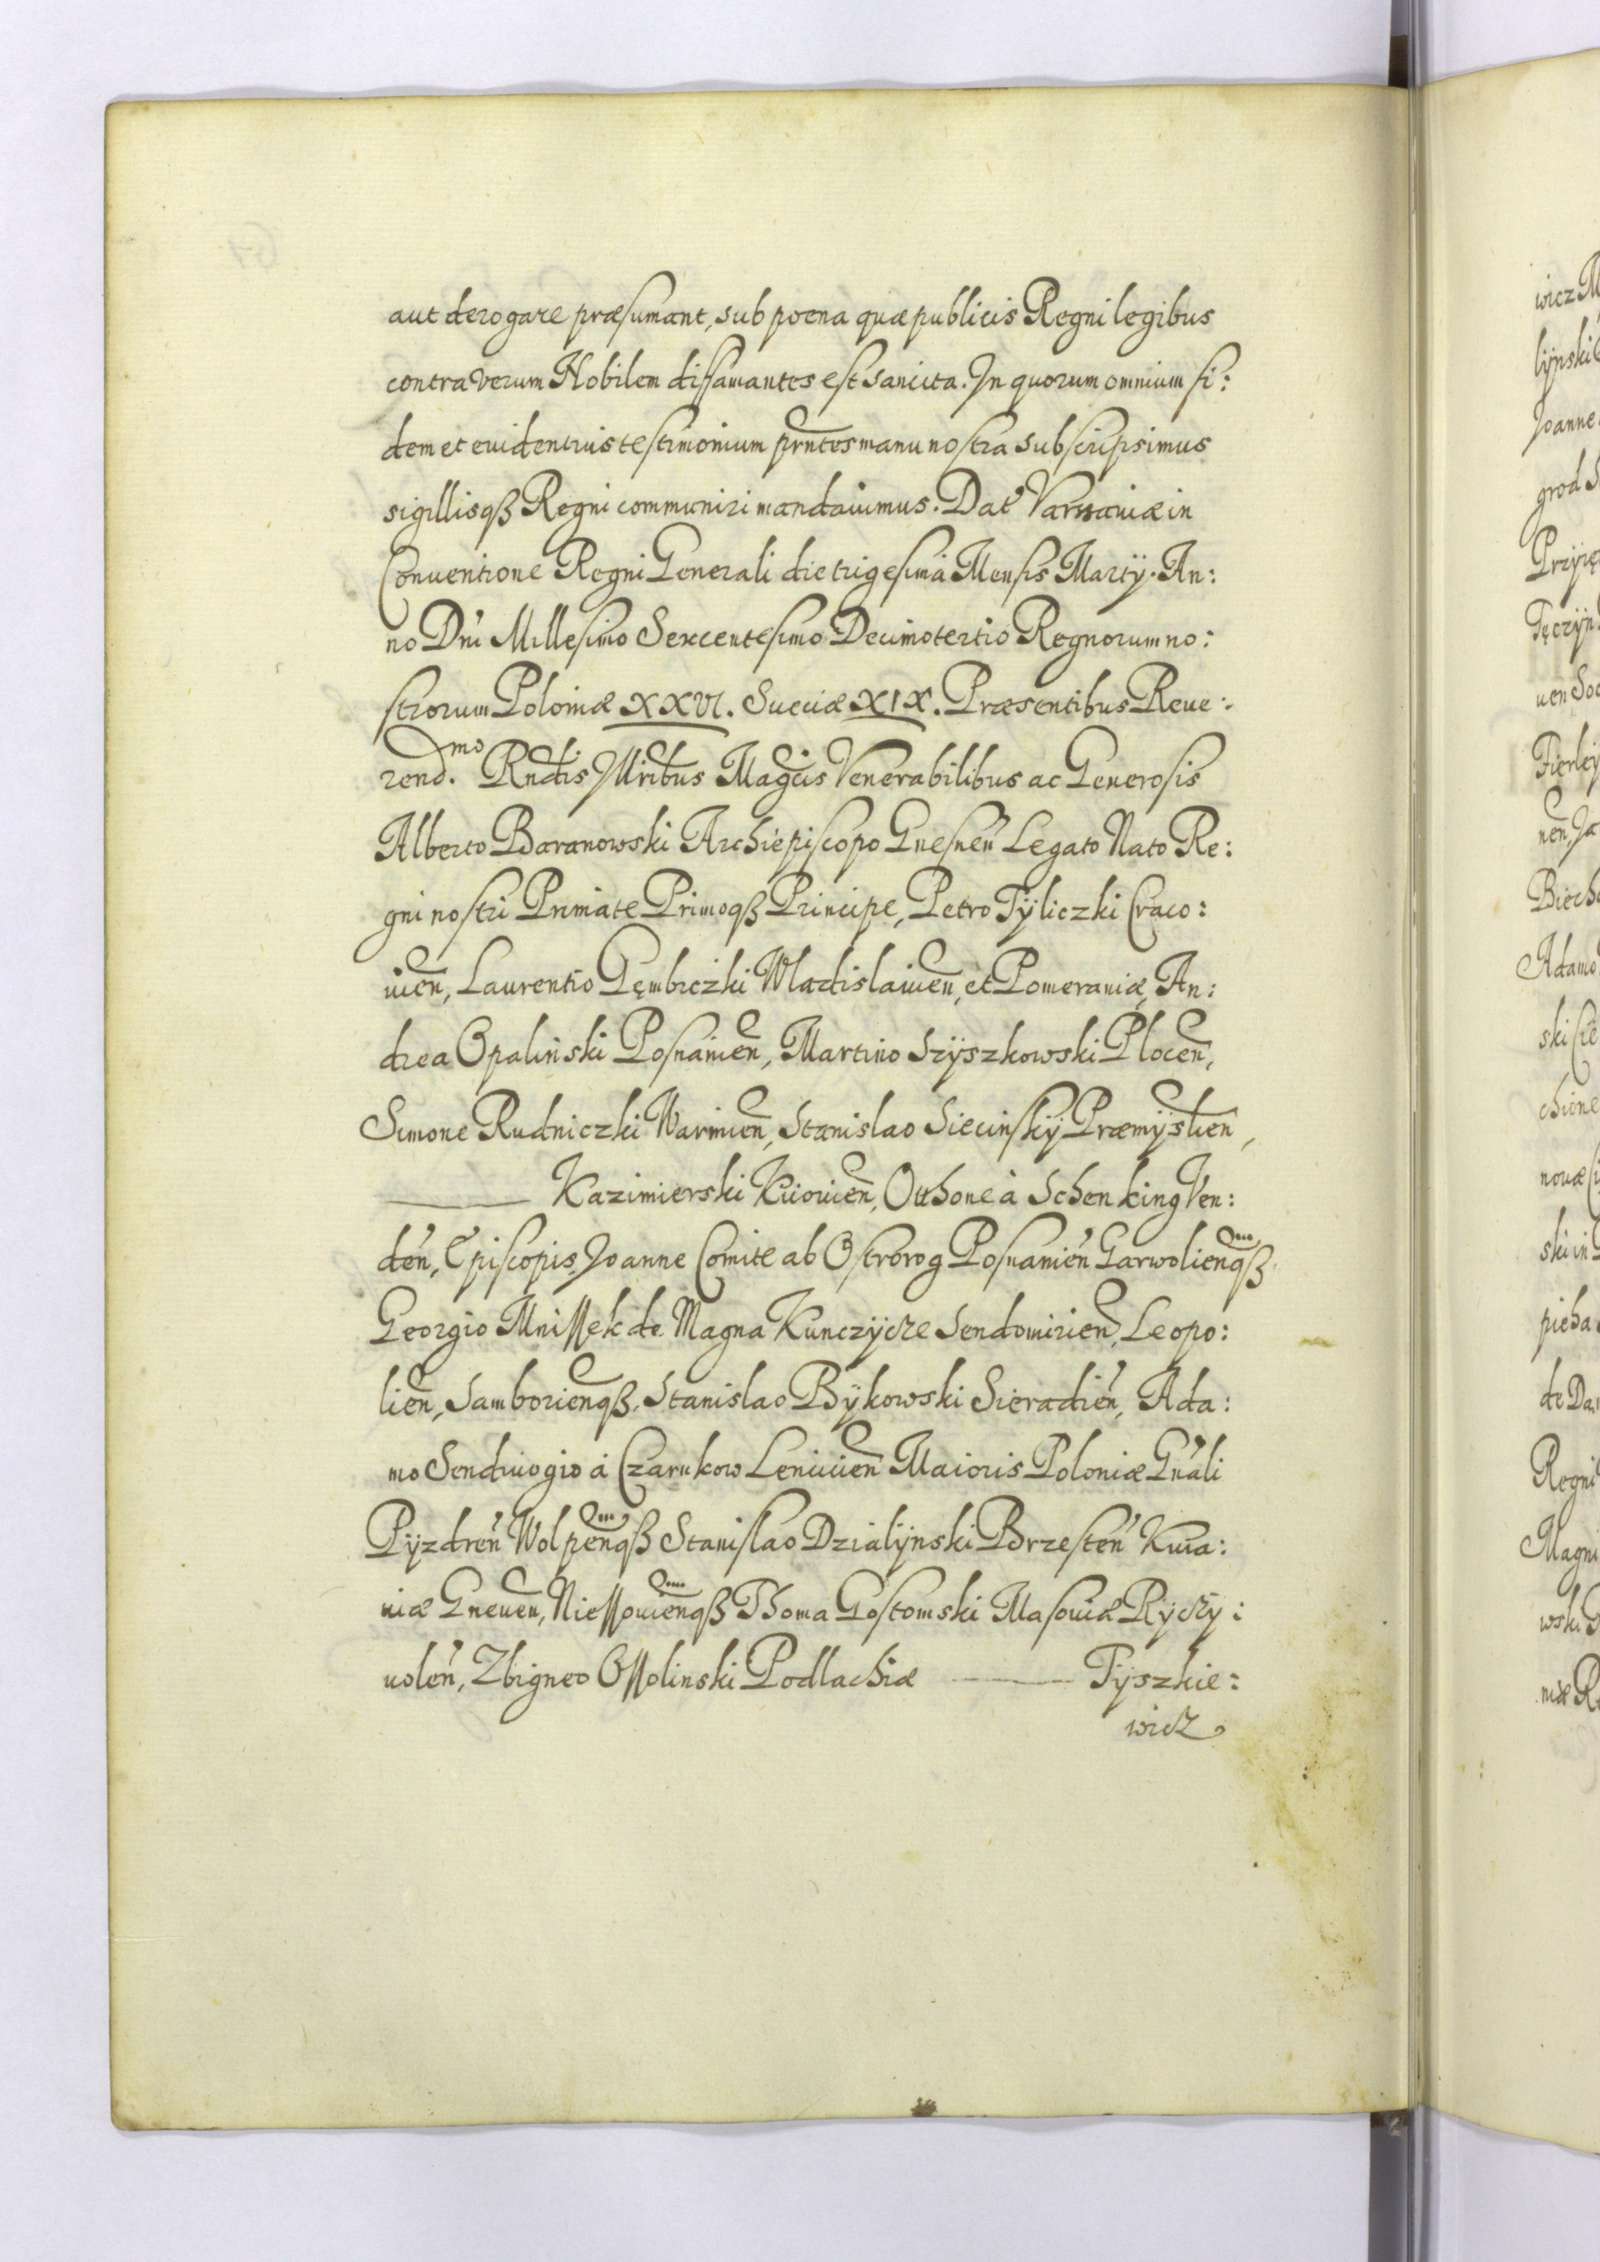 aut derogare præsumant, sub poena quæ publicis Regni legibus
contra verum Nobilem diffamantes est sancita. In quorum omnium fi:
dem et evidentius testimonium pñtes manu nostra subscripsimus
sigillisqß Regni communiri mandavimus. Dat Varsaviæ in
Conventione Regni Generali die trigesimâ Mensis Martÿ. An:
no Dñi Millesimo Sexcentesimo Decimotertio Regnorum no:
strorum Poloniæ XXVI. Sueciæ XIX. Præsentibus Reve:
rend.mo Rndis Illribus Magcis Venerabilibus ac Generosis
Alberto Baranowski Archiepiscopo Gnesneñ Legato Nato Re:
gni nostri Primate Primoqß Principe, Petro Tÿliczki Craco:
vien, Laurentio Gęmbiczki Wladislavien, et Pomeraniæ, An:
drea Opalinski Posnanien, Martino Szÿszkowski Plocen,
Simone Rudniczki Warmien, Stanislao Siecinskÿ Præmÿslien,
Kazimierski Kiiovien, Otthone à Schenking Ven:
den, Episcopis, Joanne Comite ab Ostrorog Posnanien Garwolienqß
Georgio Mnissek de Magna Kunczÿcze Sendomirien, Leopo:
lien, Samborienqß. Stanislao Bÿkowski Sieradien, Ada:
mo Sendivogio à Czarnkow Lenicien Maioris Poloniæ Gnali
Pÿzdren Wolpenqß Stanislao Dzialÿnski Brzesten Kuia:
viæ Gneven, Niessovienqß Thoma Gostomski Masoviæ Rÿczÿ:
volen, Zbigneo Ossolinski Podlachiæ Tÿszkie:
wicz